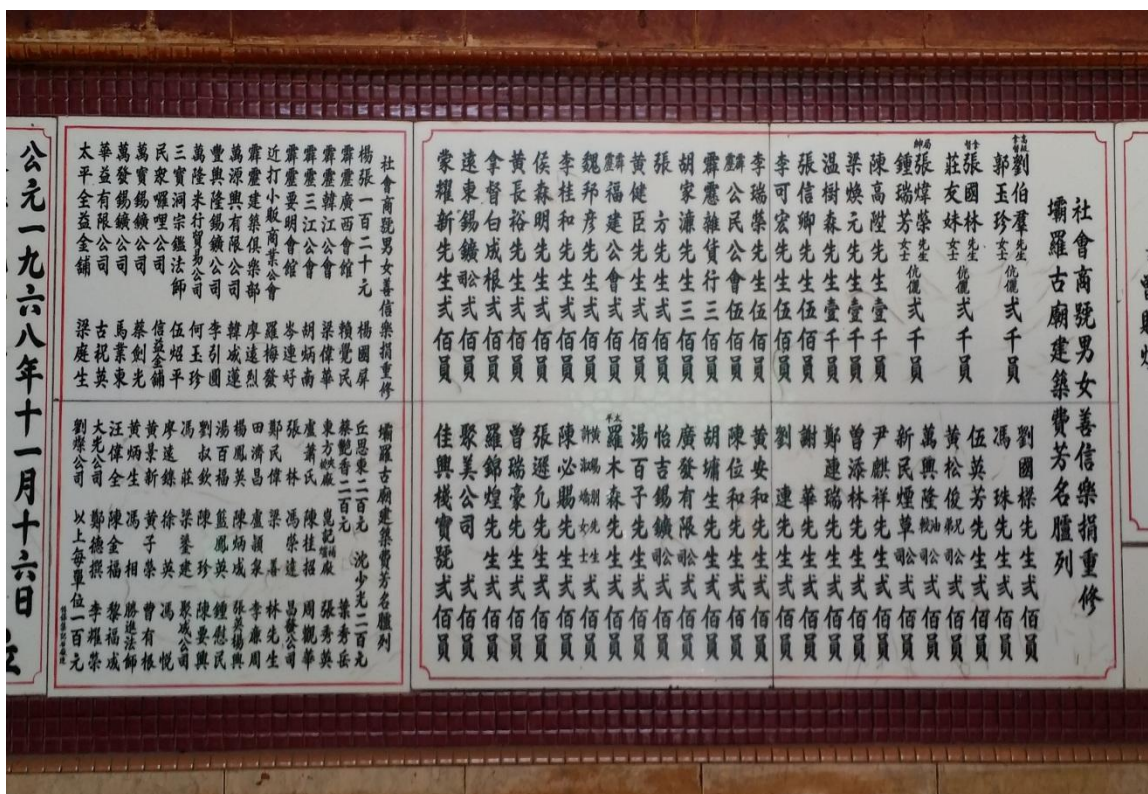 社會商號男女善信樂捐重修
壩羅古廟建築費芳名臚列
劉伯羣先生
郭玉珍女士
伉儷弍千員
張國林先生
莊友妹女士
伉儷弍千員
張煒榮先生
鍾瑞芳女士
伉儷弍千員
陳高陞先生壹千員
梁煥元先生壹千員
温樹森先生壹千員
張信卿先生伍佰員
李可宏先生伍佰員
李瑞榮先生伍佰員
霹靂公民公會伍佰員
霹靂雜貨行三佰員
胡家濂先生三佰員
張方先生弍佰員
黄健臣先生弍佰員
霹靂福建公會弍佰員
魏邦彦先生弍佰員
李桂和先生弍佰員
侯森明先生弍佰員
黄長裕先生弍佰員
拿督白成根弍佰員
遠東錫鑛公司弍佰員
蒙耀新先生弍佰員
劉國樑先生弍佰員
馮珠先生弍佰員
伍英芳先生弍佰員
黄松俊兄弟公司弍佰員
萬興隆油較公司弍佰員
新民煙草公司弍佰員
尹麒祥先生弍佰員
曾添林先生弍佰員
鄭連瑞先生弍佰員
謝華先生弍佰員
劉連先生弍佰員
黄安和先生弍佰員
陳位和先生弍佰員
胡墉生先生弍佰員
廣發有限公司弍佰員
怡吉錫鑛公司弍佰員
湯百子先生弍佰員
太平羅木森先生弍佰員
陳必賜先生弍佰員
張遜允先生弍佰員
曾瑞豪先生弍佰員
羅錦煌先生弍佰員
聚美公司弍佰員
佳興棧寶號弍佰員
社會商號男女善信樂捐重修
壩羅古廟建築費芳名臚列
楊張一百二十元
霹靂廣西會館
霹靂韓江公會
霹靂三江公會
霹靂要明會館
近打小販商業公會
霹靂建築俱樂部
萬源興有限公司
豐興隆錫鑛公司
萬隆米行貿易公司
三寶洞宗鑑法師
民衆囉哩公司
萬寶錫鑛公司
萬發錫鑛公司
華益有限公司
太平全益金鋪
楊國屏
賴覺民
梁偉華
胡炳南
岑連好
羅梅發
廖遠烈
韓成蓮
李引圓
何玉珍
伍炤平
信益金鋪
蔡劍光
馬業東
古祝英
梁庭生
丘思東二百元
蔡艷香二百元
盧蕭氏
張林
鄭民偉
田濟昌
楊鳳英
湯百福
劉叔欽
馮莊
廖遠錄
黄景新
黄炳生
汪偉全
大光公司
劉燦公司
沈少光二百元
陳桂招
馮榮遠
梁善
盧顯泉
陳炳成
藍鳳英
陳珍
梁鎏建
徐英
黄子榮
馮相
陳金福
鄭德撰
以上每單位一百元
葉秀岳
張秀英
周觀華
昌發公司
林先生
李廉周
張英楊興
鍾慰民
陳要興
聚成公司
馮悦
曾有根
勝進法師
黎福成
李耀榮
公元一九六八年十一月十六日